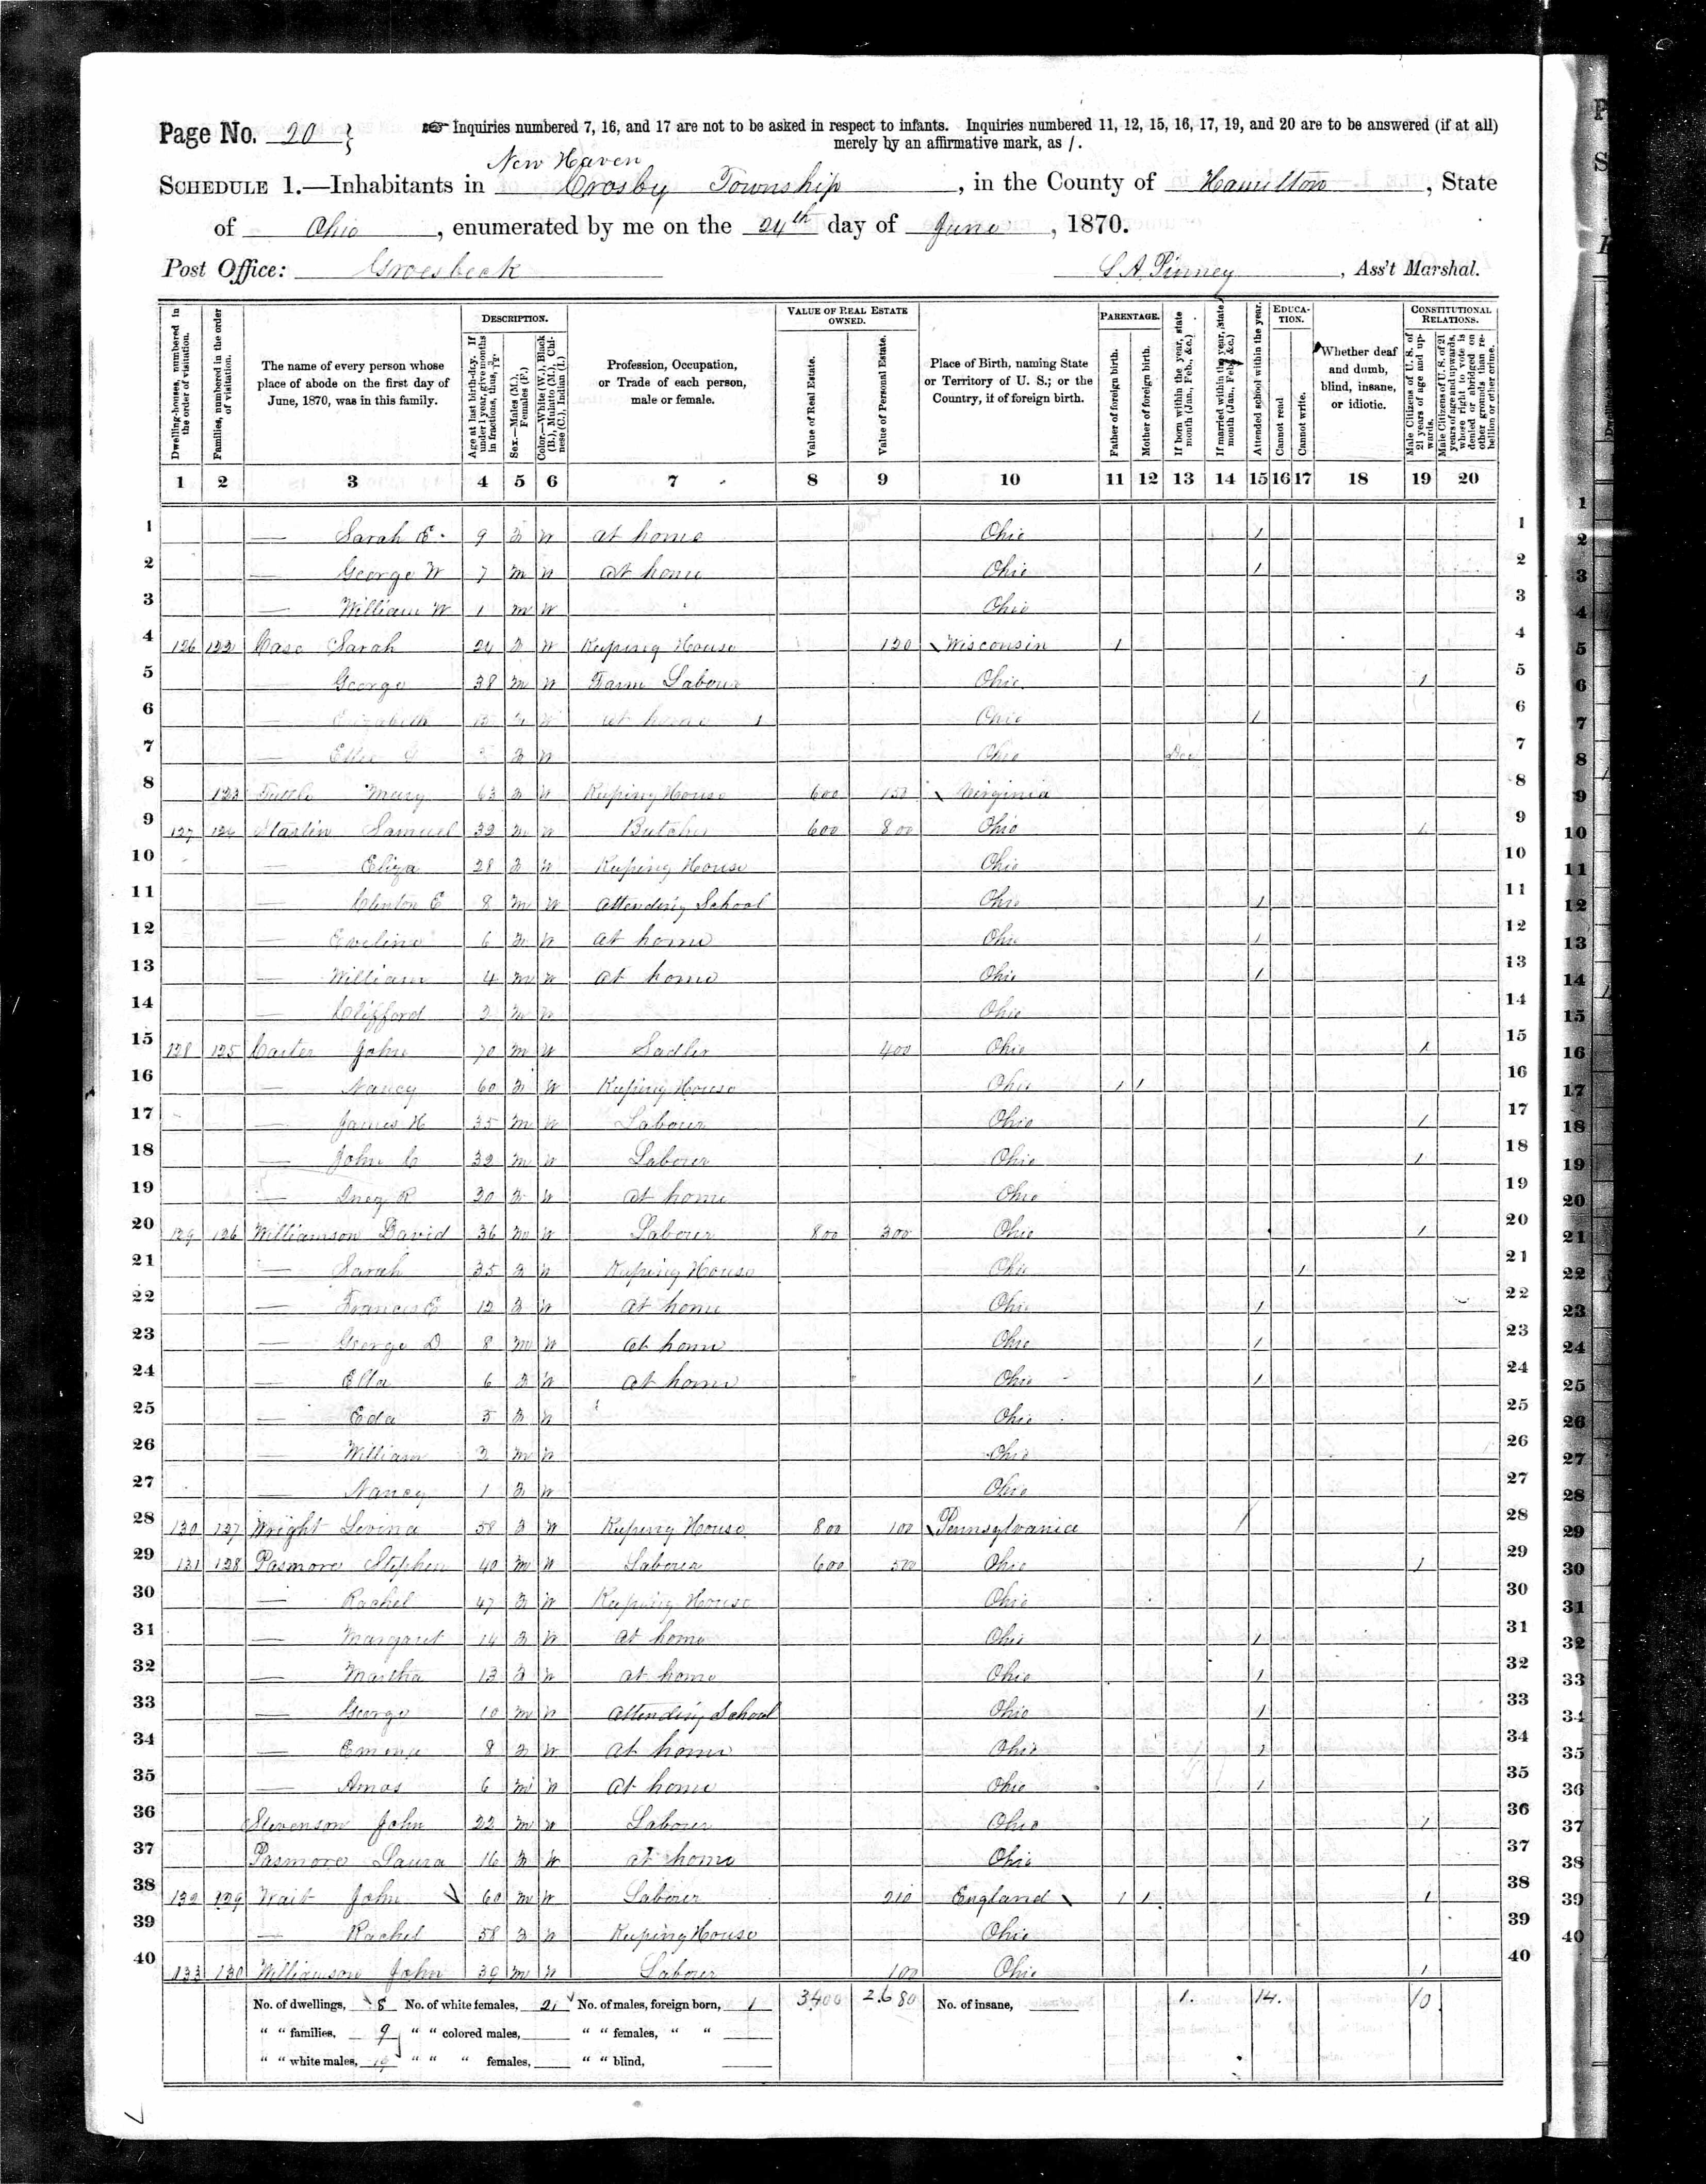 Page No. 20 } Inquiries numbered 7, 16, and 17 are not to be asked in respect to infants. Inquiries numbered 11, 12, 15, 16, 17, 19, and 20 are to be answered (if at all)
merely by an affirmative mark, as /.
New Haven
SCHEDULE 1.—Inhabitants in Crosby Township, in the County of Hamilton, State
of Ohio, enumerated by me on the 24th day of June, 1870.
Post Office: Groesbeck S. A. Pinney, Ass't Marshal.
Dwelling-houses, numbered in the order of visitation.
Families, numbered in the order of visitation.
The name of every person whose place of abode on the first day of June, 1870, was in this family.
DESCRIPTION.
Age at last birth-day. If under 1 year, give months in fractions, thus, 3/12.
Sex.—Males (M.), Females (F.)
Color.—White (W.), Black (B.), Mulatto (M.), Chinese (C.), Indian (I.)
Profession, Occupation, or Trade of each person, male or female.
VALUE OF REAL ESTATE OWNED.
Value of Real Estate.
Value of Personal Estate.
Place of Birth, naming State or Territory of U. S.; or the Country, if of foreign birth.
PARENTAGE.
Father of foreign birth.
Mother of foreign birth.
If born within the year, state month (Jan., Feb. &c.)
If married within the year, state month (Jan., Feb. &c.)
Attended school within the year.
EDUCATION.
Cannot read.
Cannot write.
Whether deaf and dumb, blind, insane, or idiotic.
CONSTITUTIONAL RELATIONS.
Male Citizens of U. S. of 21 years of age and upwards.
Male Citizens of U. S. of 21 years of age and upwards, whose right to vote is denied or abridged on other grounds than rebellion or other crime.
1 2 3 4 5 6 7 8 9 10 11 12 13 14 15 16 17 18 19 20
1 — Sarah E. 9 F W at home Ohio / 1
2 — George W 7 M W at home Ohio / 2
3 — William W 1 M W Ohio 3
4 126 122 Case Sarah 24 F W Keeping House 120 Wisconsin / 4
5 George 38 M W Farm Labour Ohio / 5
6 — Elizabeth F W at home Ohio / 6
7 — F W Ohio Dec 7
8 123 Tuttle Mary 63 F W Keeping House 600 150 Virginia 8
9 127 124 Samuel 32 M W Butcher 600 800 Ohio / 9
10 — Eliza 28 F W Keeping House Ohio 10
11 — Clinton E 8 M W Attending School Ohio / 11
12 — Eveline 6 F W at home Ohio / 12
13 — William 4 M W at home Ohio / 13
14 — Clifford 2 M W Ohio 14
15 128 125 Carter John 70 M W Sadler 400 Ohio / 15
16 — Nancy 60 F W Keeping House Ohio / / 16
17 — James H 35 M W Labourer Ohio / 17
18 — John C 32 M W Laborer Ohio / 18
19 — Inez R 30 F W at home Ohio 19
20 129 126 Williamson David 36 M W Laborer 800 300 Ohio / 20
21 — Sarah 35 F W Keeping House Ohio / 21
22 — Frances E 12 F W at home Ohio / 22
23 — George D 8 M W at home Ohio / 23
24 — Ella 6 F W at home Ohio / 24
25 — Eda 5 F W Ohio 25
26 — William 3 M W Ohio 26
27 — Nancy 1 F W Ohio 27
28 130 127 Wright Levina 58 F W Keeping House 800 100 Pennsylvania 28
29 131 128 Pasmore Stephen 40 M W Laborer 600 500 Ohio / 29
30 — Rachel 47 F W Keeping House Ohio 30
31 — Margaret 14 F W at home Ohio / 31
32 — Martha 13 F W at home Ohio / 32
33 — George 10 M W Attending School Ohio / 33
34 — 8 F W at home Ohio / 34
35 — Amos 6 M W at home Ohio / 35
36 Stevenson John 22 M W Laborer Ohio / 36
37 Pasmore Laura 16 F W at home Ohio 37
38 132 129 Wait John 60 M W Laborer 210 England / / / 38
39 — Rachel 58 F W Keeping House Ohio 39
40 133 130 Williamson John 39 M W Labourer 100 Ohio / 40
No. of dwellings, 8 No. of white females, 21 No. of males, foreign born, 1 3400 2680 No. of insane, 1. 14. 10
" " families, 9 " " colored males, " " females, " "
" " white males, 19 " " " females, " " blind,